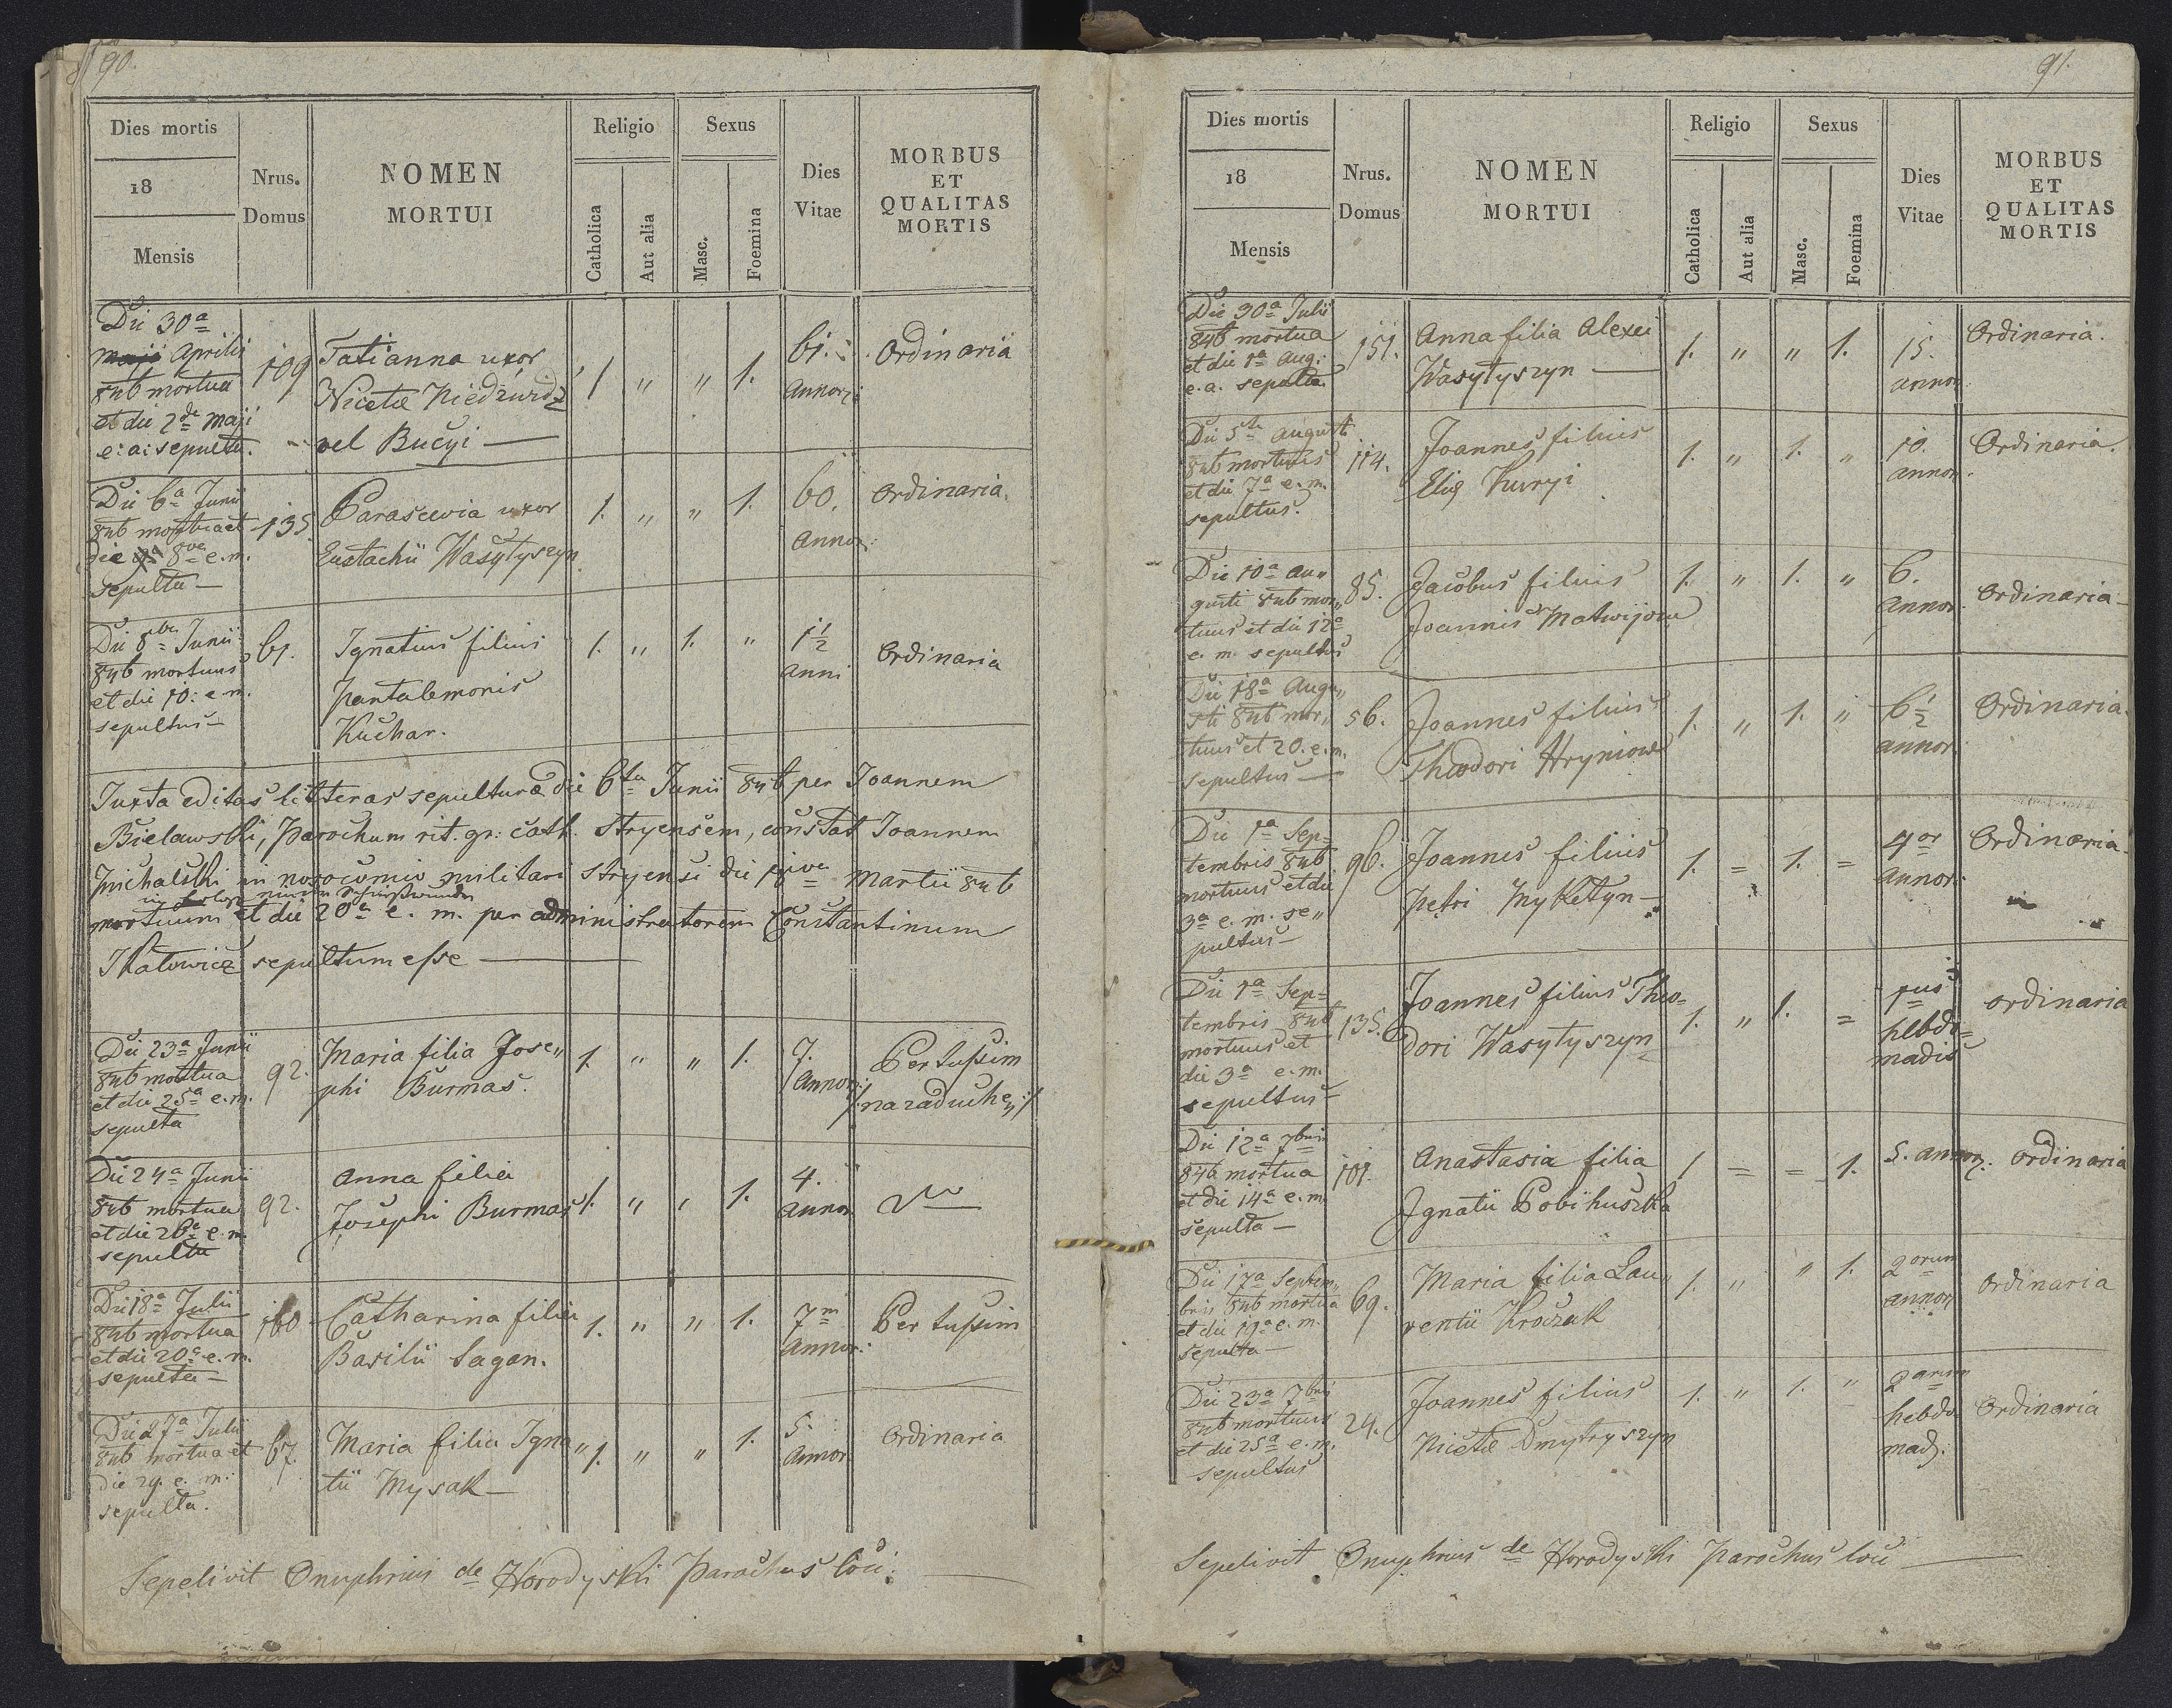 90.
Dies mortis
18
Mensis
Nrus.
Domus
NOMEN
MORTUI
Religio
Catholica
Aut alia
Sexus
Masc.
Foemina
Dies
Vitae
MORBUS
ET
QUALITAS
MORTIS
Die 30a
Aprilis
846 mortua
et die 2da Maji
e: a: sepulta.
109
Tatianna uxor
Nicetæ
vel Bucyi —
1 " " 1.
61.
annor:
Ordinaria
Die 6a Junii
846 mortua et
die 8va e. m.
sepulta —
135.
Parascevia uxor
Eustachii Wasyłyszyn
1. " " 1.
60.
Annor:
Ordinaria.
Die 8va Junii
846 mortuus
et die 10: e. m.
sepultus —
61.
Ignatius filius
Pantalemonis
Kuchar.
1. " 1. "
1 1/2
Anni
Ordinaria
Juxta editas litteras sepulturæ die 6ta Junii 846 per Joannem
Bielawski, Parochum rit. gr: cath. Stryensem, constat Joannem
Michalski in nosocomio militari Stryensi die Martii 846
mortuum et die 20a e. m. per administratorem Constantinum
sepultum esse —
Die 23a Junii
846 mortua
et die 25a e. m.
sepulta
92.
Maria filia Jose„
phi Burmas.
1. " " 1.
7.
Annor:
Per tussim
Die 24a Junii
846 mortua
et die 26a e. m.
sepulta
92.
Anna filia
Josephi Burmas
1. " " 1.
4.
annor
Die 18a Julii
846 mortua
et die 20a e. m.
sepulta —
160
Catharina filia
Basilii Sagan.
1. " " 1.
7m
Annor:
Per tussim
Die 27a Julii
846 mortua et
die 29. e. m.
sepulta.
67.
Maria filia Igna„
tii Mysak —
1. " " 1.
5.
Annor
Ordinaria
Sepelivit Onuphrius de Horodyski Parochus loci.
91.
Dies mortis
18
Mensis
Nrus.
Domus
NOMEN
MORTUI
Religio
Catholica
Aut alia
Sexus
Masc.
Foemina
Dies
Vitae
MORBUS
ET
QUALITAS
MORTIS
Die 30a Julii
846 mortua
et die 1a Aug:
e. a. sepulta.
151.
Anna filia Alexei
Wasyłyszyn —
1. " " 1.
15.
annor.
Ordinaria.
Die 5ta Augusti
846 mortuus
et die 7a e. m.
sepultus.
114.
Joannes filius
Eliæ Kuryi
1. " 1. "
10.
annor.
Ordinaria.
Die 10a Au„
gusti 846 mor„
tuus et die 12a
e. m. sepultus
85.
Jacobus filius
Joannis Matwijow
1. " 1. "
6.
annor.
Ordinaria —
Die 18a Augu„
sti 846 mor„
tuus et 20. e. m.
sepultus —
56.
Joannes filius
Theodori Hryniow
1. " 1. "
6 1/2
annor.
Ordinaria.
Die 1a Sep=
tembris 846
mortuus et die
3a e. m. se„
pultus —
96.
Joannes filius
Petri Myketyn —
1. = 1. =
4or
annor:
Ordinaria.
Die 1a Sep=
tembris 846
mortuus et
die 3a e. m.
sepultus —
135.
Joannes filius Theo=
dori Wasyłyszyn
1. " 1. =
1us
hebdo=
madis
ordinaria
Die 12a 7bris
846 mortua
et die 14a e. m.
sepulta —
101.
Anastasia filia
Ignatii Pobihuszka
1 = = 1.
5. annor:
ordinaria
Die 17a Septem„
bris 846 mortua
et die 19a e. m.
sepulta —
69.
Maria filia Lau„
rentii Kroczak
1. " " 1.
2orum
annor
Ordinaria
Die 23a 7bris
846 mortuus
et die 25a e. m.
sepultus
24.
Joannes filius
Nicetæ Dmytryszyn
1. " 1. "
2arum
hebdo
mad:
Ordinaria
Sepelivit Onuphrius de Horodyski Parochus loci —